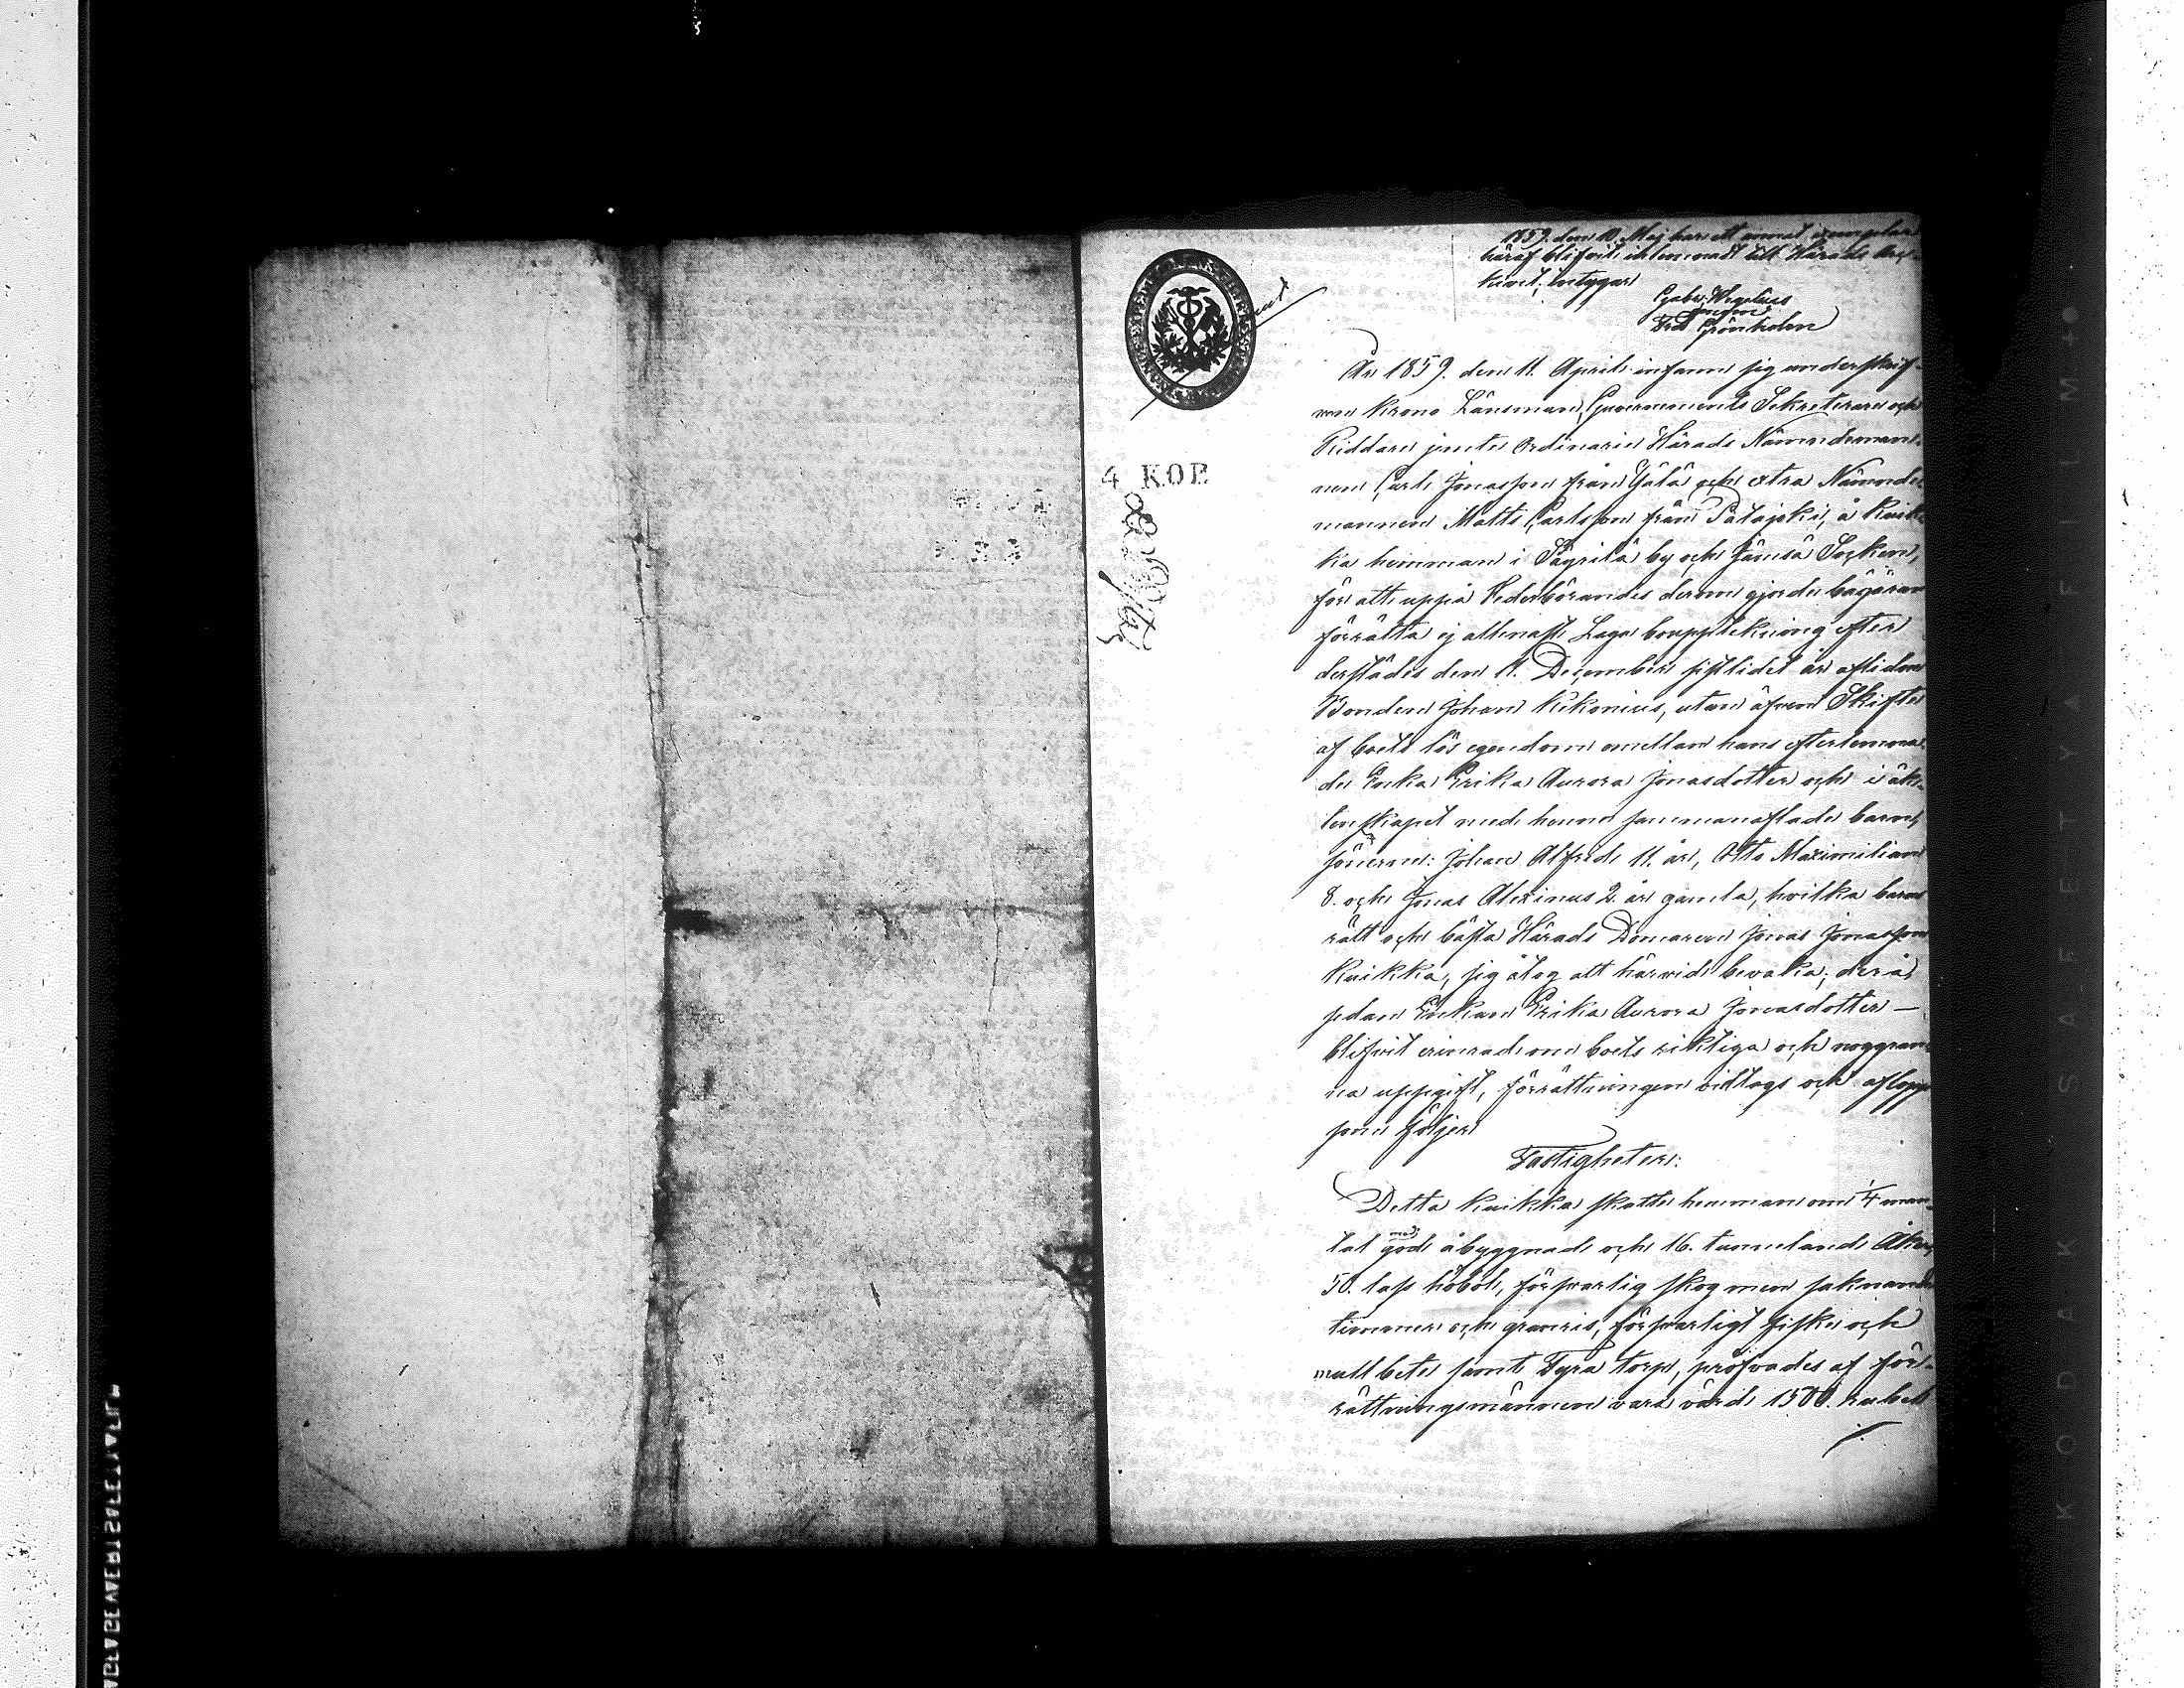 1859. den 10. Maj har ett annat exemplar
häraf blifvit inlemnadt till Härads Ar-
kivet; intygar
Gabr. Wegelius
Fred Grönholm
4 KOP.
År 1859. den 11. April infann sig underskrif-
ven Krono Länsman, Guvernements Sekreterare och
Riddare jemte Ordinarie Härads Nämndeman-
nen Carl Jonasson från Yjälä och extra Nämnde-
mannen Matts Carlsson från Patajoki, å Kuik-
ka hemman i Säyrilä by och Jämsä Socken,
för att uppå Vederbörandes derom gjorde begäran
förrätta ej allenast Laga bouppteckning efter
derstädes den 11. December sistlidet år aflidne
Bonden Johan Kikonius, utan äfven Skifte
af boets lös egendom emellan hans efterlemna-
de Enka Erika Aurora Jonasdotter och i äk-
tenskapet med henne sammanaflade barn,
sönerne: Johan Alfred 11. år, Otto Maximilian
8. och Jonas Alexinus 2 år gamla, hvilka barns
rätt och bästa Härads Domaren Jonas Jonasson
Kuikka, sig åtog att härvid bevaka; derå
sedan Enkan Erika Aurora Jonasdotter —
blifvit erinrad om boets riktiga och noggran-
na uppgift, förrättningen vidtogs och aflopp
som följer
Fastigheter:
Detta Kuikka skatte hemman om 1/4 man-
tal med god åbyggnad och 16. tunneland Åker,
50. lass höbol, försvarlig skog men saknande
timmer och granris, försvarligt fiske och
mulbete samt Fyra torp, pröfvades af för-
rättningsmännen vara värd 1500. rubel